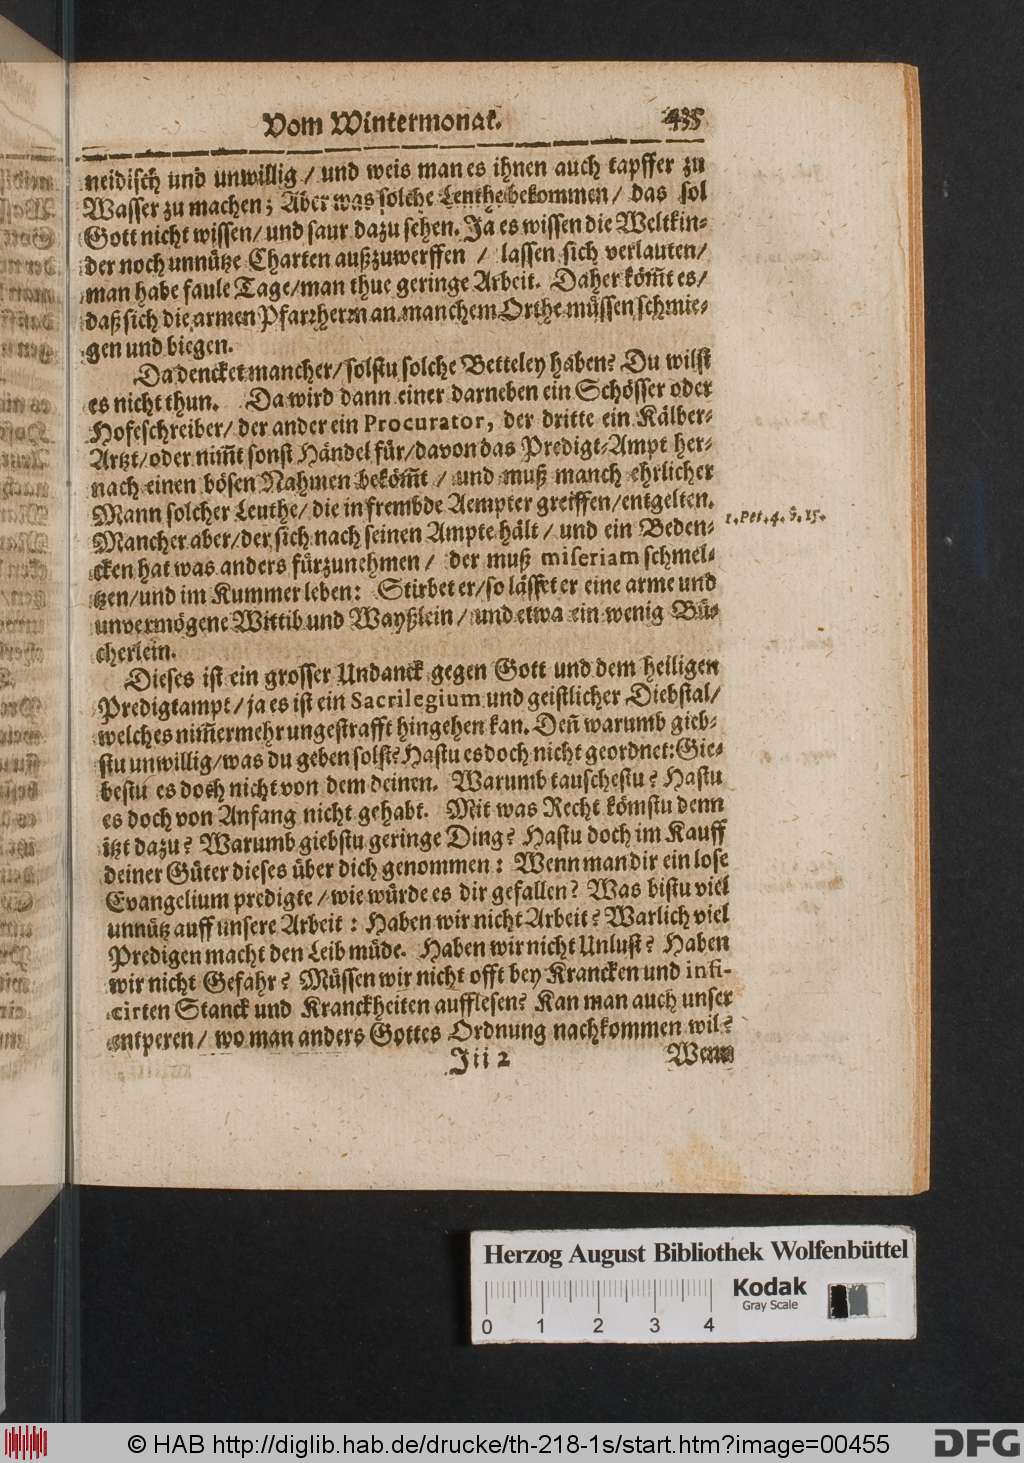 Vom Wintermonat. 435
neidisch und unwillig / und weis man es ihnen auch tapffer zu
Wasser zu machen; Aber was solche Leuthe bekommen / das sol
Gott nicht wissen / und saur dazu sehen. Ja es wissen die Weltkin-
der noch unnütze Charten außzuwerffen / lassen sich verlauten /
man habe faule Tage / man thue geringe Arbeit. Daher köm̃t es /
daß sich die armen Pfarrherrn an manchem Orthe müssen schmie-
gen und biegen.
Da dencket mancher / solstu solche Betteley haben? Du wilst
es nicht thun. Da wird dann einer darneben ein Schösser oder
Hofeschreiber / der ander ein Procurator, der dritte ein Kälber-
Artzt / oder nim̃t sonst Händel für / davon das Predigt-Ampt her-
nach einen bösen Nahmen beköm̃t / und muß manch ehrlicher
Mann solcher Leuthe / die in frembde Aempter greiffen / entgelten.
1. Pet. 4. v. 15.
Mancher aber / der sich nach seinen Ampte hält / und ein Beden-
cken hat was anders fürzunehmen / der muß miseriam schmel-
tzen / und im Kummer leben: Stirbet er / so lässet er eine arme und
unvermögene Wittib und Wayßlein / und etwa ein wenig Bü-
cherlein.
Dieses ist ein grosser Undanck gegen Gott und dem heiligen
Predigtampt / ja es ist ein Sacrilegium und geistlicher Diebstal /
welches nim̃ermehr ungestrafft hingehen kan. Den̄ warumb gieb-
stu unwillig / was du geben solst? Hastu es doch nicht geordnet: Gie-
bestu es doch nicht von dem deinen. Warumb tauschestu? Hastu
es doch von Anfang nicht gehabt. Mit was Recht kömstu denn
itzt dazu? Warumb giebstu geringe Ding? Hastu doch im Kauff
deiner Güter dieses über dich genommen: Wenn man dir ein lose
Evangelium predigte / wie würde es dir gefallen? Was bistu viel
unnütz auff unsere Arbeit: Haben wir nicht Arbeit? Warlich viel
Predigen macht den Leib müde. Haben wir nicht Unlust? Haben
wir nicht Gefahr? Müssen wir nicht offt bey Krancken und infi-
cirten Stanck und Kranckheiten aufflesen? Kan man auch unser
entperen / wo man anders Gottes Ordnung nachkommen wil?
Jii 2 Wenn
Herzog August Bibliothek Wolfenbüttel
0 1 2 3 4
Kodak
Gray Scale
© HAB http://diglib.hab.de/drucke/th-218-1s/start.htm?image=00455
DFG